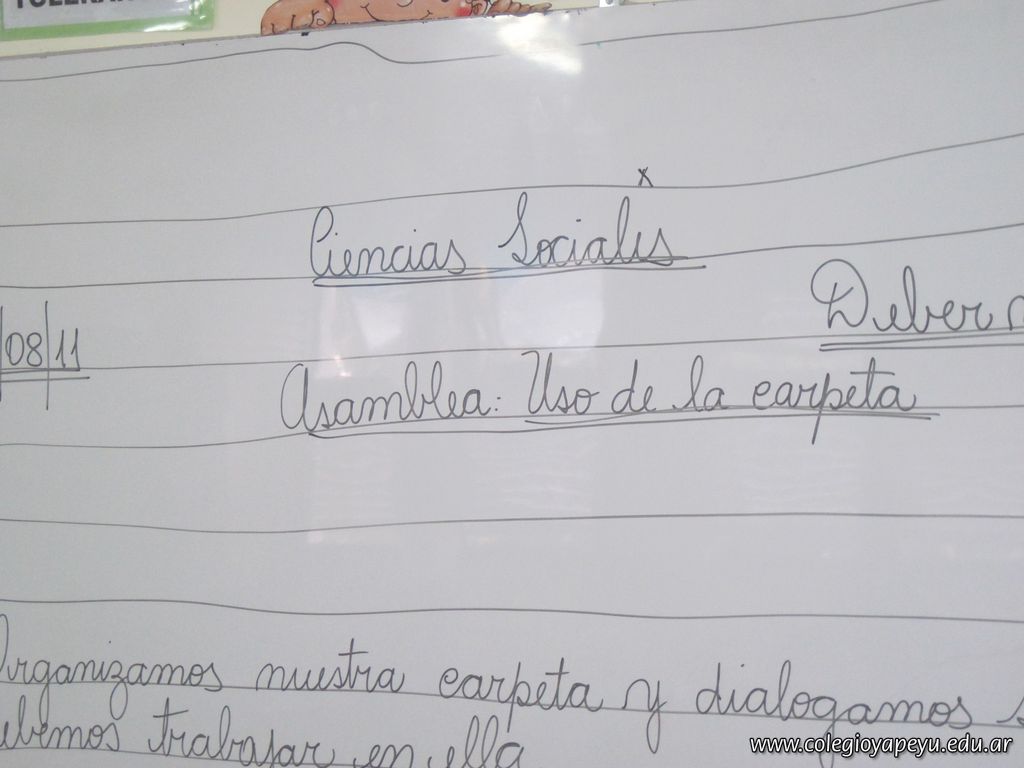 Ciencias Sociales
Deber
/08/11
Asamblea: Uso de la carpeta
Organizamos nuestra carpeta y dialogamos
debemos trabajar en ella
www.colegioyapeyu.edu.ar